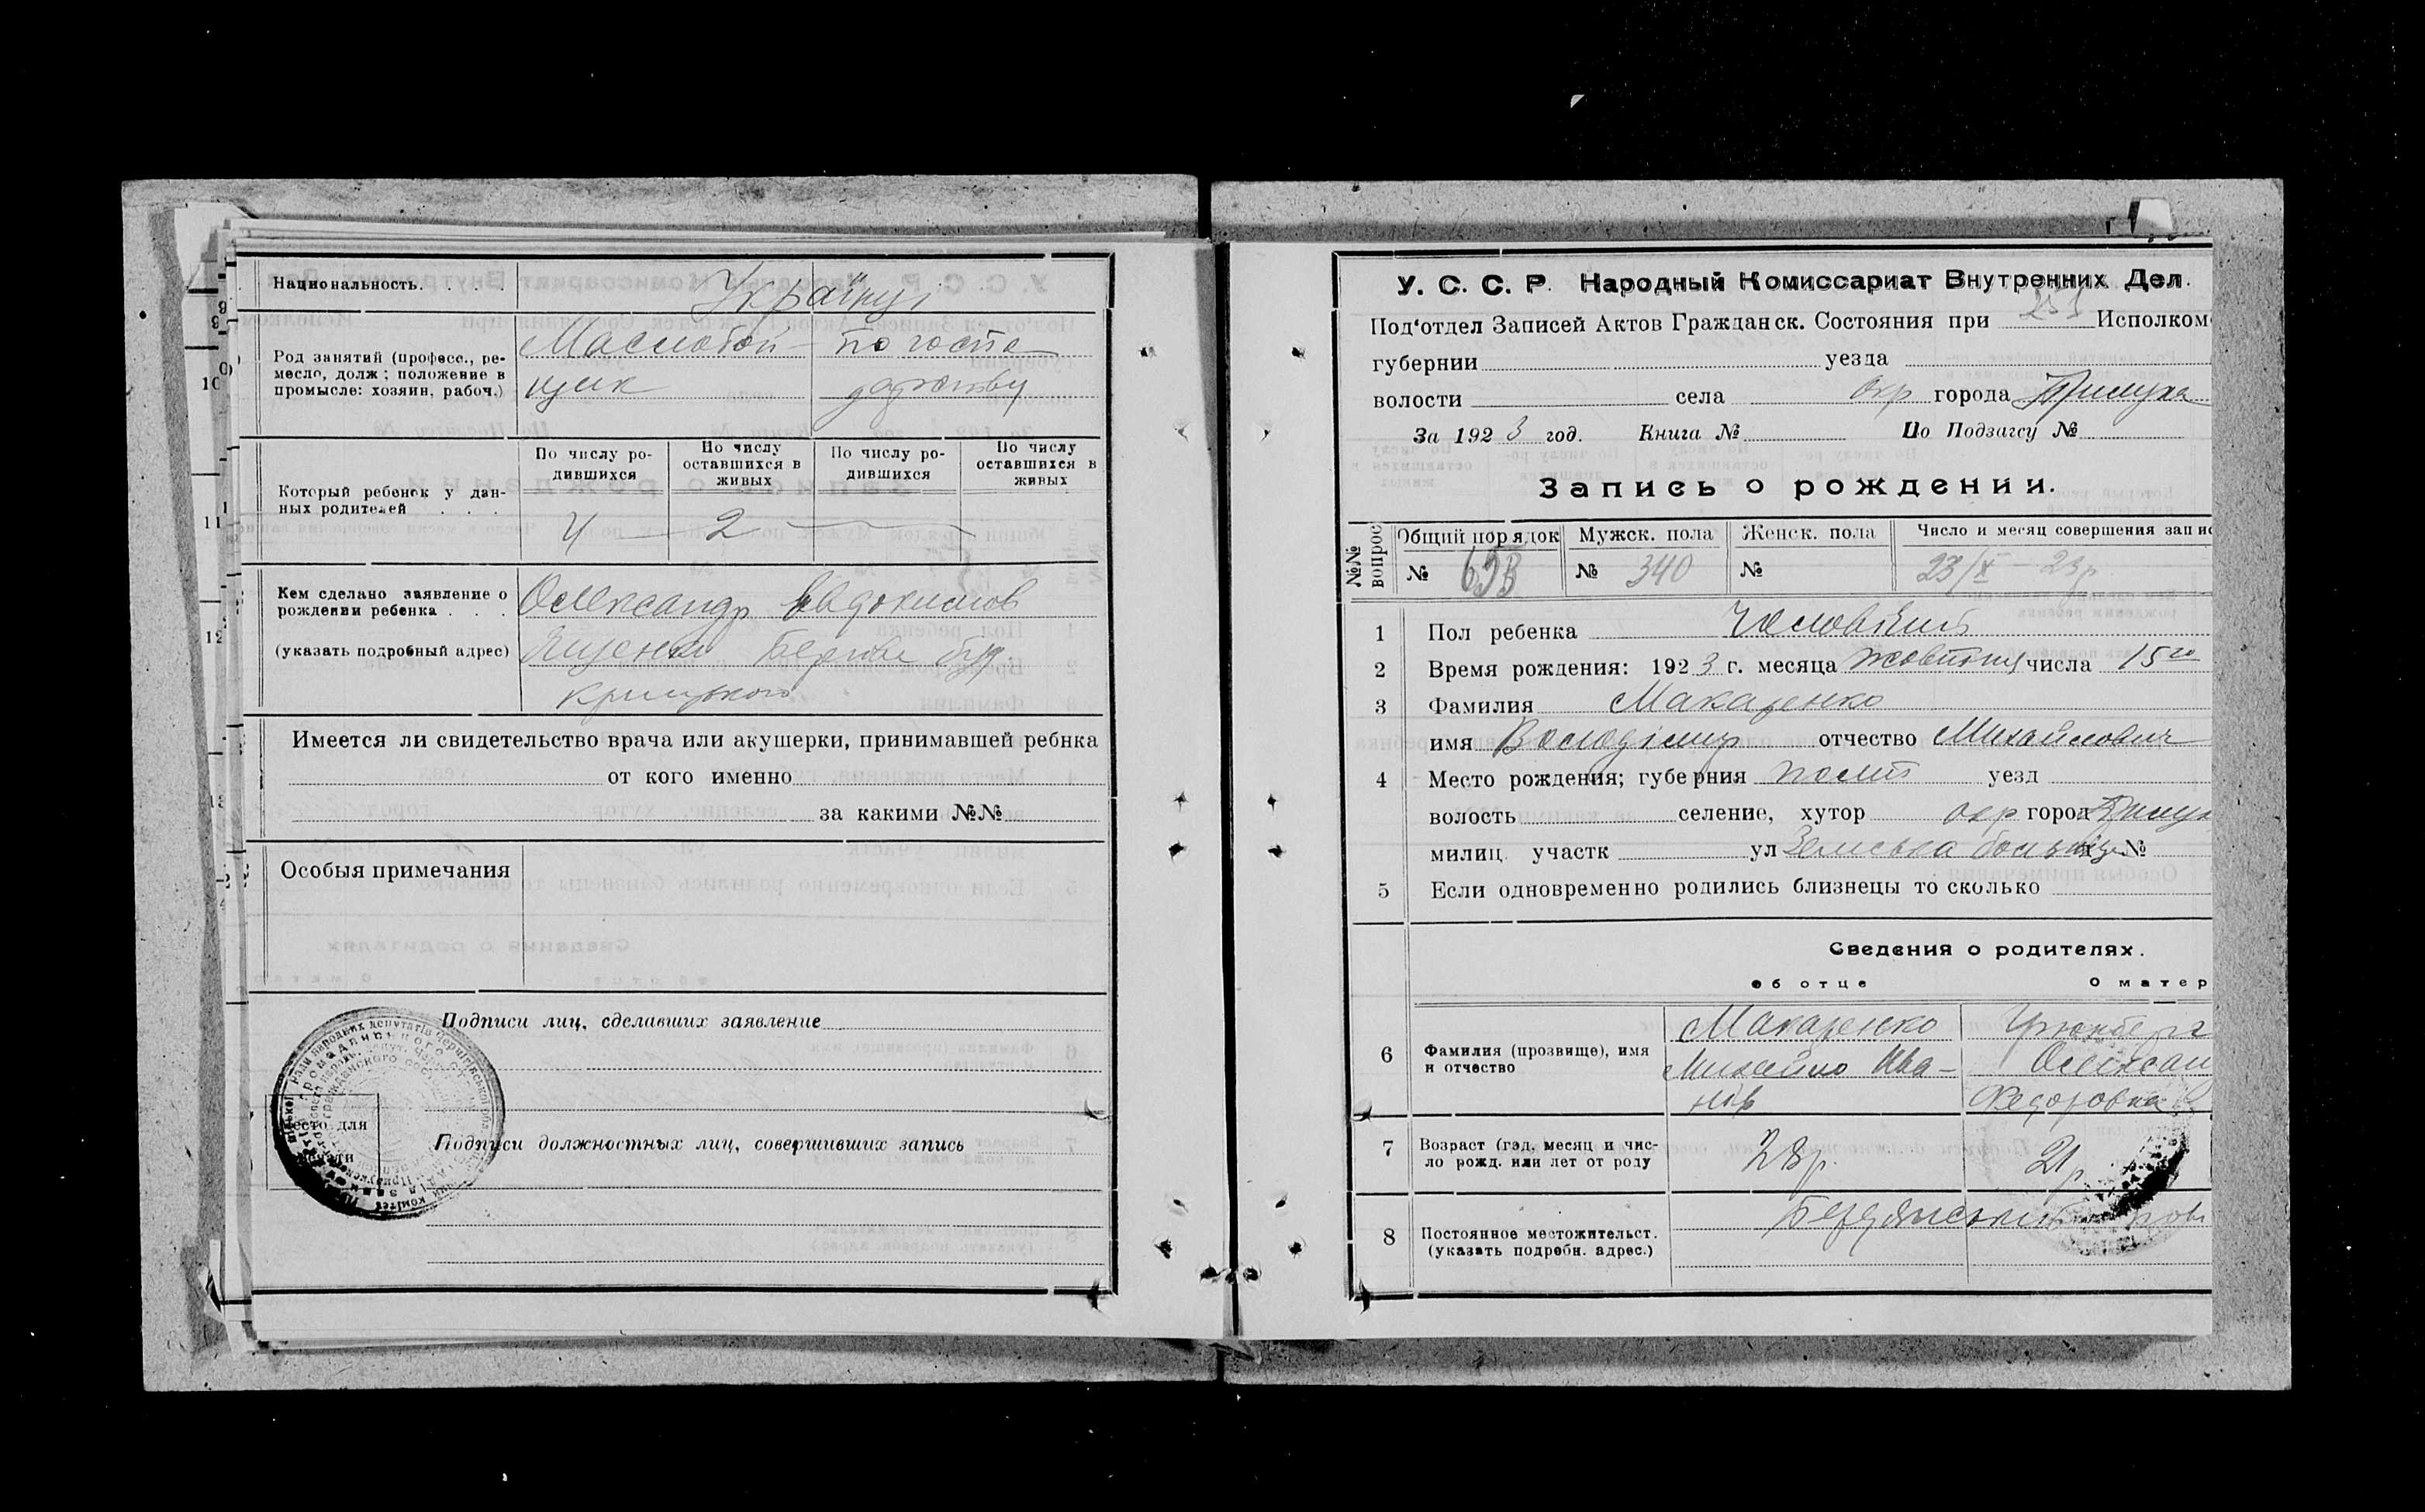 Национальность. . . . Українці
Род занятий (професс., ре-
месло, долж; положение в
промысле: хозяин, рабоч.)
Маслобой- по госпо
щик дарству
Который ребенок у дан-
ных родителей . . .
По числу ро-
дившихся
По числу
оставшихся в
живых
По числу ро-
дившихся
По числу
оставшихся в
живых
4 2
Кем сделано заявление о
рождении ребенка . . .
(указать подробный адрес)
Олександр Евдокимов
Ященко
Имеется ли свидетельство врача или акушерки, принимавшей ребнка
от кого именно
за какими №№
Особыя примечания
Подписи лиц, сделавших заявление
Место для
печати
Подписи должностных лиц, совершивших запись
У. С. С. Р. Народный Комиссариат Внутренних Дел.
Под'отдел Записей Актов Гражданск. Состояния при Исполком
губернии уезда
волости села окр города Прилука
За 1923 год. Книга № По Подзагсу №
Запись о рождении.
№№ вопрос
Общий порядок Мужск. пола Женск. пола Число и месяц совершения запис
№ № 340 № 23/X - 23р
1 Пол ребенка Чоловічий
2 Время рождения: 1923 г. месяца жовтня числа 15го
3 Фамилия Макаренко
имя Володимир отчество Михайлович
4 Место рождения; губерния полт уезд
волость селение, хутор окр город Прилук
милиц. участк ул Земська больниця №
5 Если одновременно родились близнецы то сколько
Сведения о родителях.
об отце О матер
6 Фамилия (прозвище), имя
и отчество
Макаренко
Михайло Ива-
нов
Олександ
Федоровна
7 Возраст (год, месяц и чис-
ло рожд. или лет от роду
28р. 21р
8 Постоянное местожительст.
(указать подробн. адрес.)